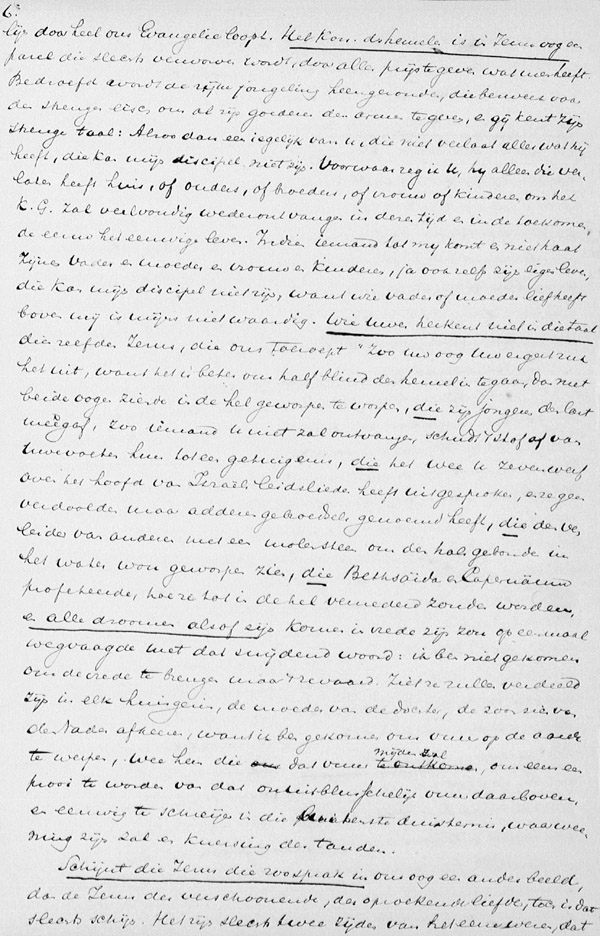 6.
lijk door heel ons Evangelie loopt. Het Kon. d. hemelen is in Jezus oog een
parel die slechts verworven wordt, door alles prijs te geven wat men heeft.
Bedroefd wordt de rijke jongeling heengezonden, die berucht voor
den strengen eisch om al zijn goederen den armen te geven, en gij kent zijn
strenge taal: Alzoo dan een iegelijk van u, die niet verlaat alles wat hij
heeft, die kan mijn discipel niet zijn. Voorwaar zeg ik u, hij alleen die ver-
laten heeft huis, of ouders, of broeders, of vrouw of kinderen om het
K. G. zal veelvoudig wederontvangen in dezen tijd en in de toekomen-
de eeuw het eeuwige leven. Indien iemand tot mij komt en niet haat
zijnen vader en moeder en vrouw en kinderen, ja ook zelfs zijn eigen leven,
die kan mijn discipel niet zijn, want wie vader of moeder lief heeft
boven mij is mijns niet waardig. Wie uwer herkent niet in die taal
dien zelfden Jezus, die ons toeroept "Zoo uw oog u ergert ruk
het uit, want het is beter om half blind den hemel in te gaan, dan met
beide oogen ziende in de hel geworpen te worden, die zijn jongeren den last
meêgaf, zoo iemand u niet zal ontvangen, schudt 't stof af van
uwe voeten hun tot een getuigenis, die het wee u zevenwerf
over het hoofd van Israëls leidslieden heeft uitgesproken, en zegen
verdoolden maar adderengebroedsel genoemd heeft, die den ver-
leider van anderen met een molensteen om den hals gebonden in
het water wou geworpen zien, die Bethsaïda en Capernaüm
profeteerde, hoe ze tot in de hel vernederd zouden worden,
en alle droomen alsof zijn komen in vrede zijn zou op eenmaal
wegvaagde met dat snijdend woord: ik ben niet gekomen
om de vrede te brengen maar 't zwaard. Ziet ze zullen verdeeld
zijn in elk huisgezin, de moeder van de dochter, de zoon zich van
den Vader afkeeren, want ik ben gekomen om vuur op de aarde
te werpen, wee hem die dat vuur mijden zal, om eens een
prooi te worden van dat onuitbluschelijk vuur daarboven,
en eeuwig te schreijen in die buitenste duisternis, waar wee-
ning zijn zal en knersing der tanden.
Schijnt die Jezus die zoo sprak in ons oog een ander beeld,
dan de Jezus der verschoonende, der opzoekende liefde, toch is dat
slechts schijn. Het zijn slechts twee zijden van het eene wezen, dat